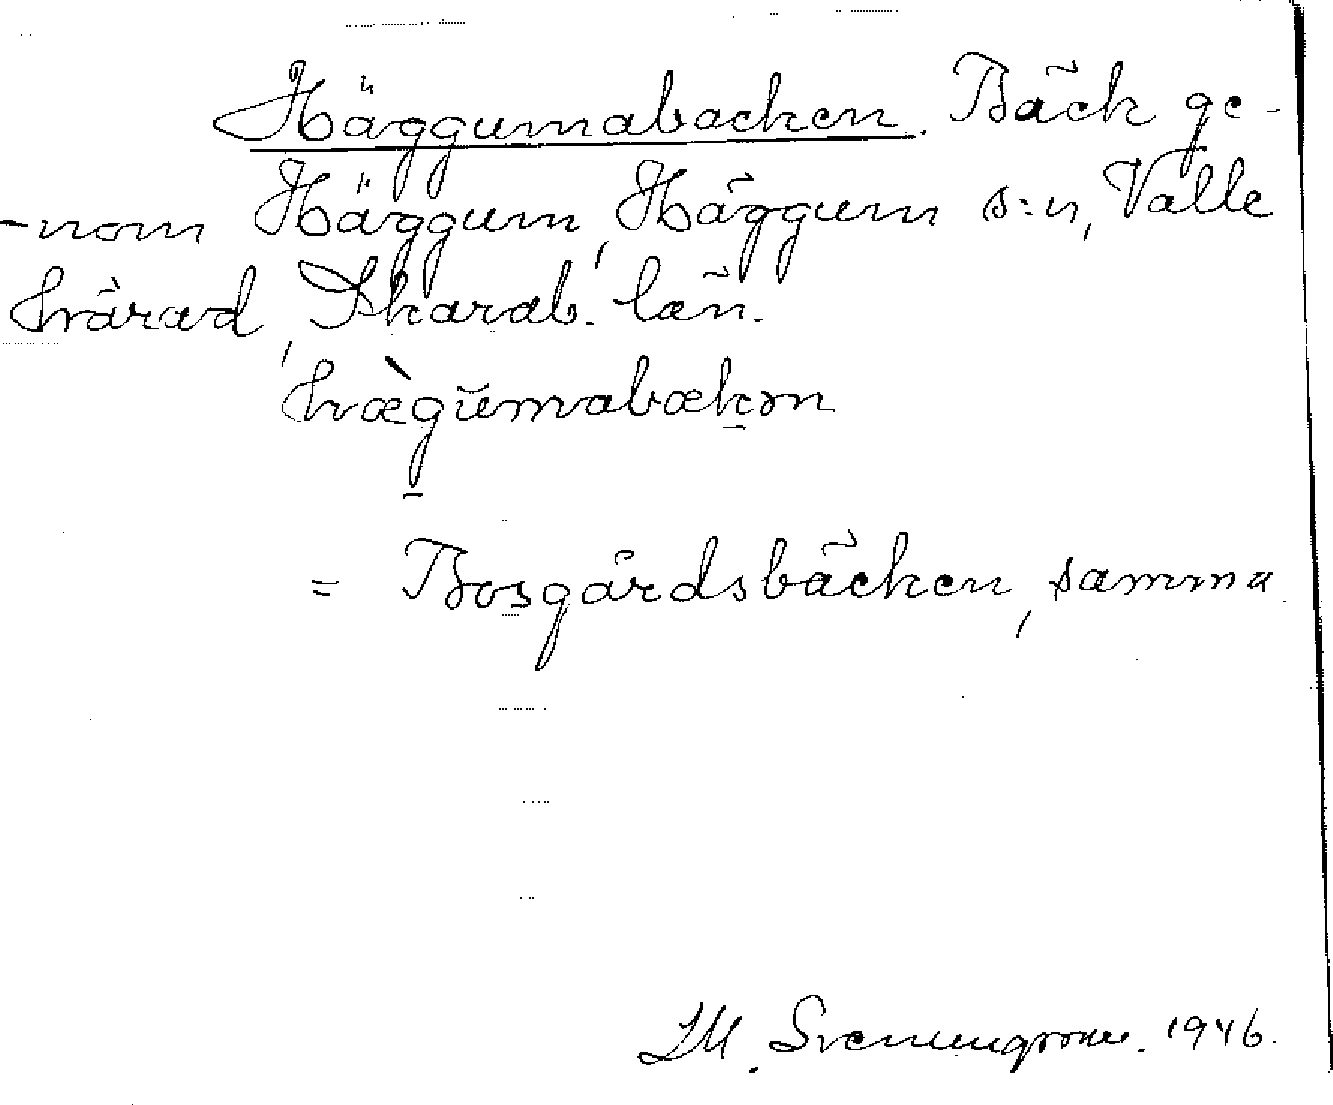 Häggumabacken. Bäck ge-
-nom Häggum, Häggum s:n, Valle
härad, Skarab. län.
hæ̀gŭmabækən
= Bosgårdsbäcken, samma
Svenungsson. 1946.